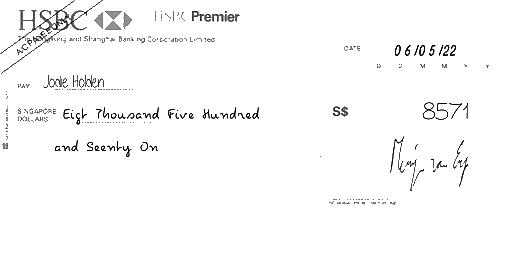 HSBC HSBC Premier
The Hongkong and Shanghai Banking Corporation Limited
DATE 06/05/22
D D M M Y Y
PAY Jodie Holden
SINGAPORE DOLLARS Eigt Thousand Five Hundred
and Seenty On
S$ 8571